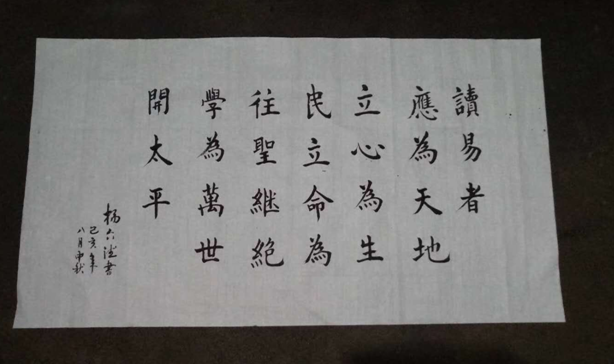 讀易者
應為天地
立心為生
民立命為
往聖繼絕
學為萬世
開太平
己亥年
八月中秋